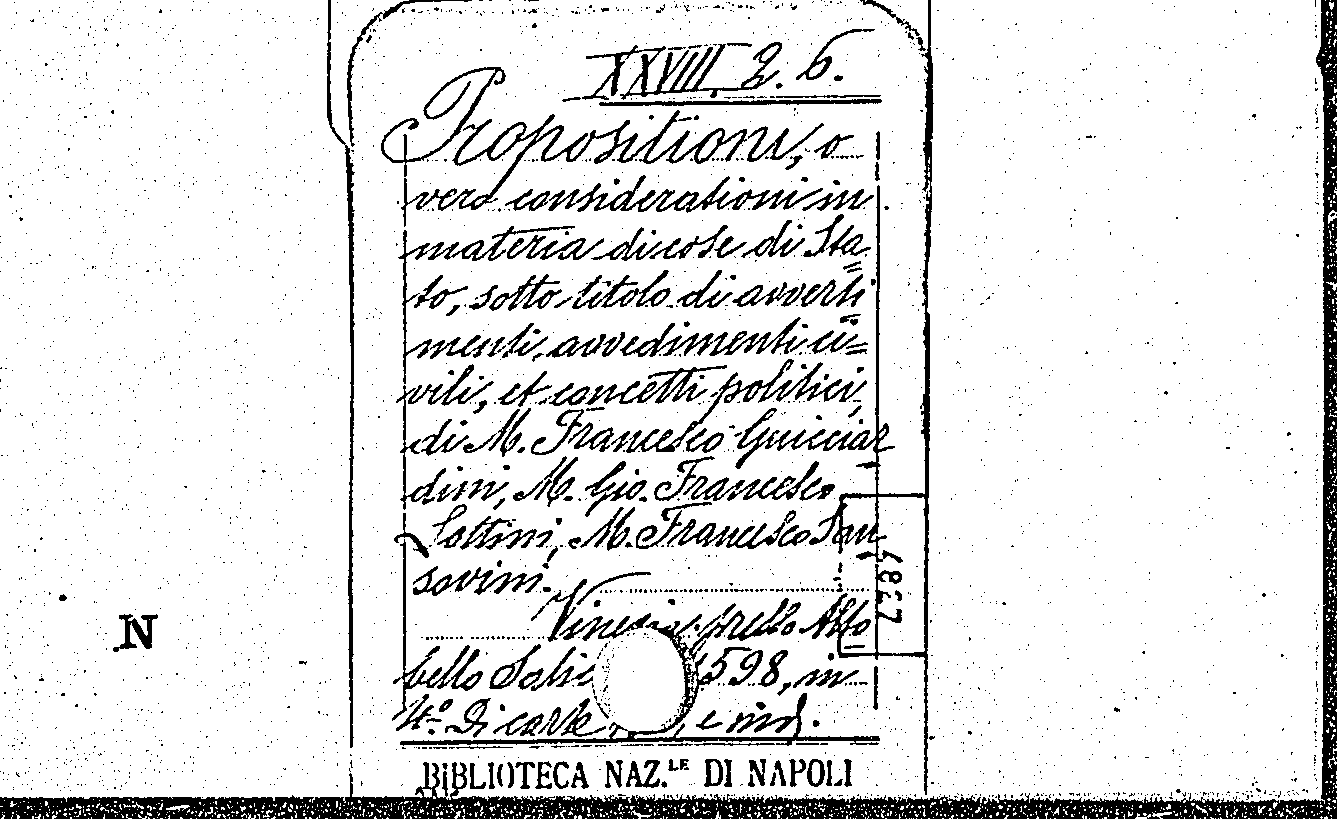 XXVIII. 2. 6.
Propositioni, o
vero considerationi in
materia di cose di Sta
to, sotto titolo di avverti
menti, avvedimenti ci=
vili, et concetti politici,
di M. Francesco Guicciar
dini, M. Gio. Francesco
Lottini, M. Francesco San
sovini.
presso Alto
bello Sali 1598, in
4.º Di carte , e ind.
N
BIBLIOTECA NAZ.LE DI NAPOLI